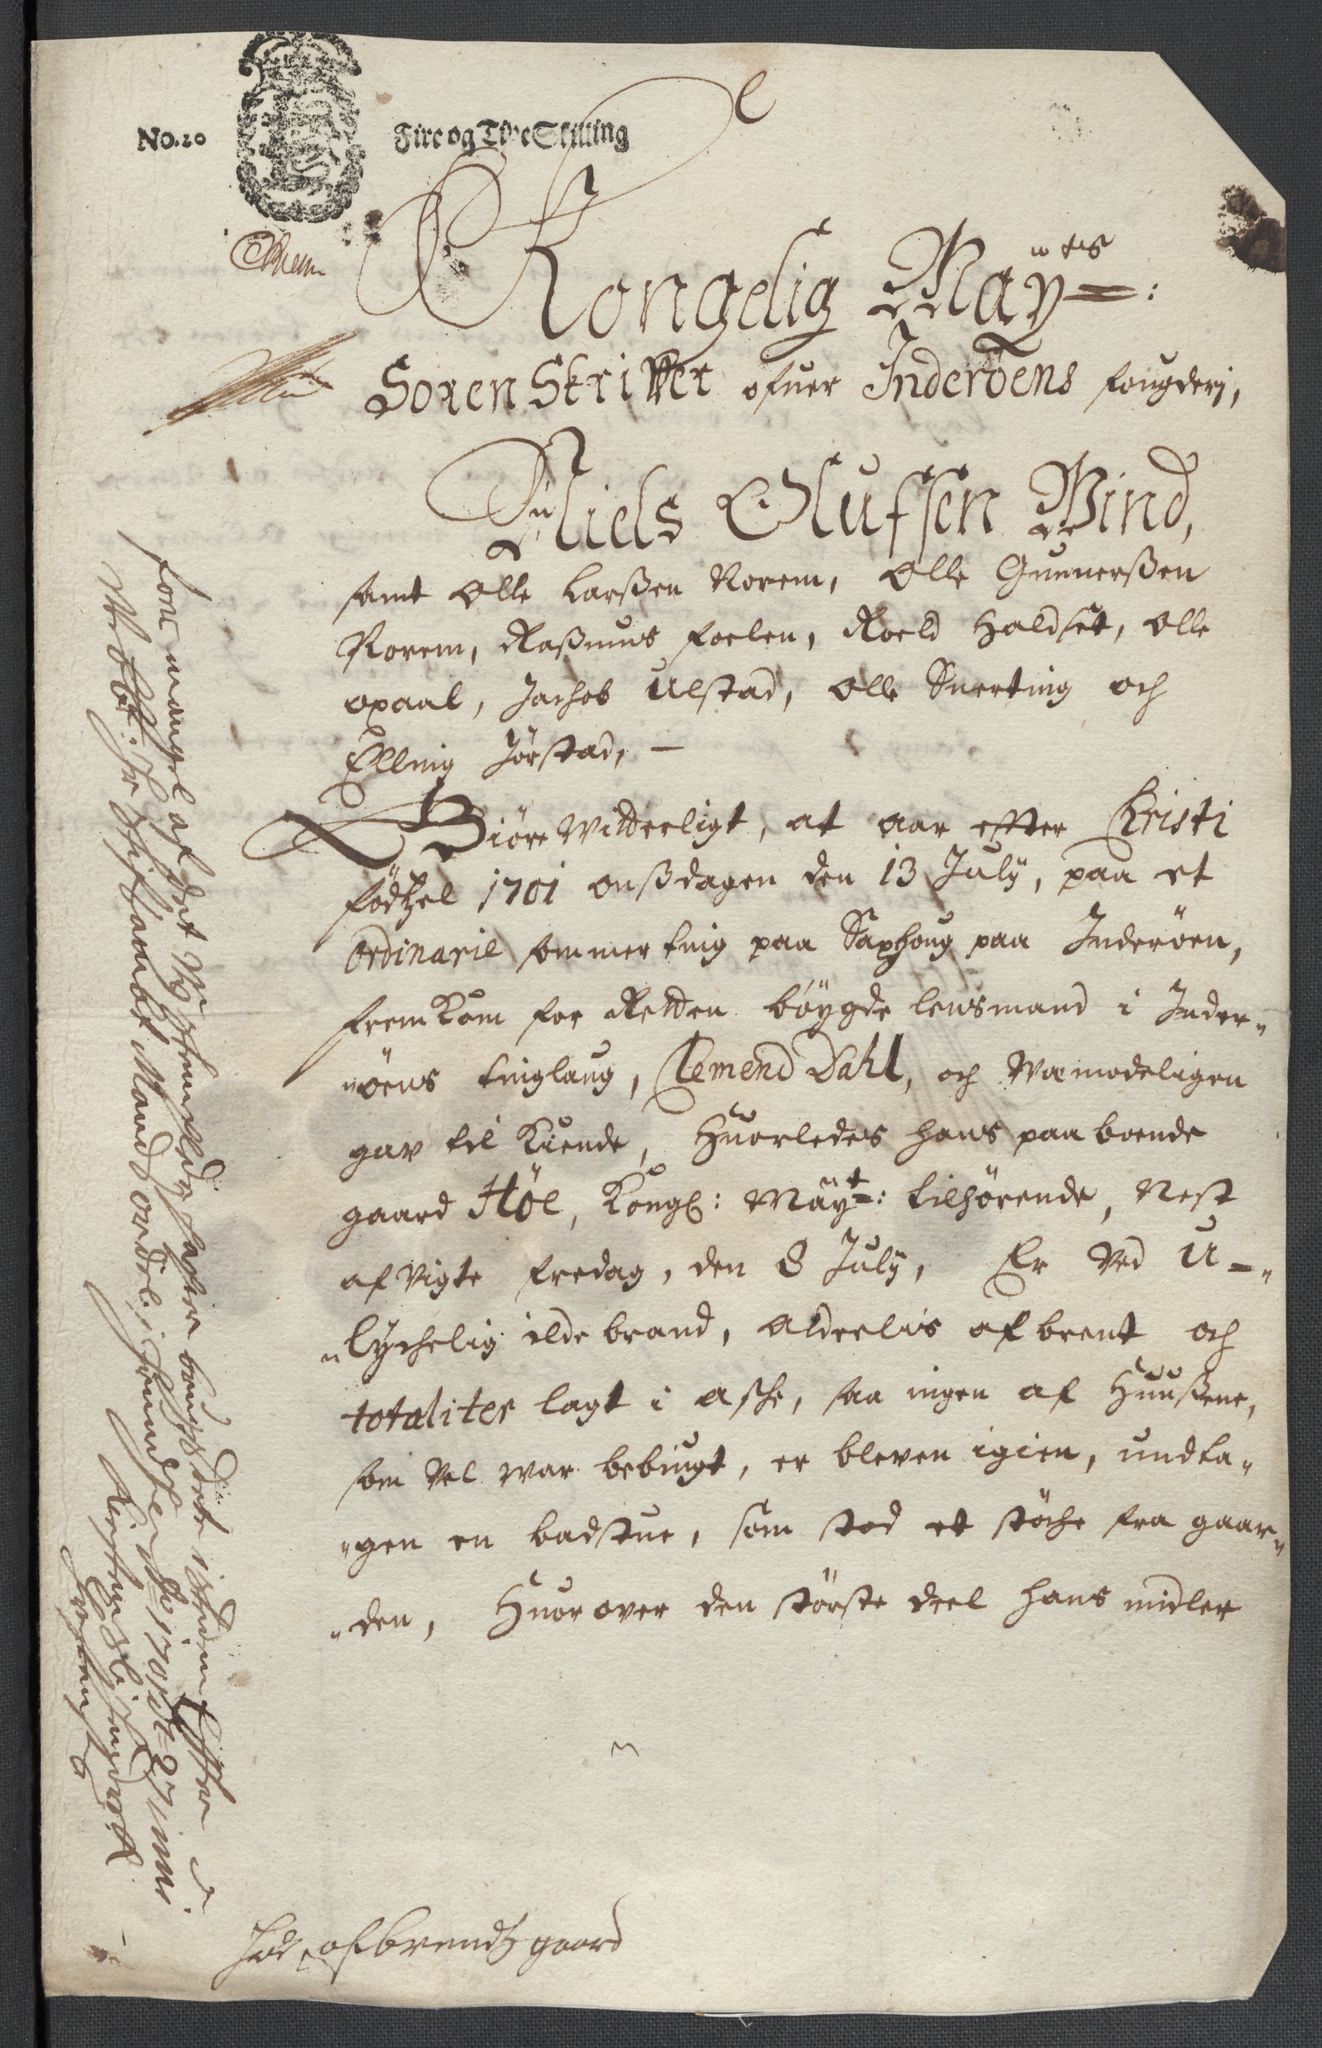 No. 20
Fire og Tive Skilling
Kongelig Mayts:
Soren Skriffver ofuer Inderöens fougderj,
Niels Olufsen Wind,
samt Olle Larßen Rorem, Olle Gunnerßen
Rorem, Raßmus foelen, Roeld Haldset, Olle
opaal, Jachob Ulstad, Olle Snerting och
Elling Jörstad, —
Giöre Witterligt, at aar efter Christi
födtzel 1701 onßdagen den 13 July, paa et
ordinarie sommerting paa Saxhoug paa Inderöen,
fremkom for Retten böygde lensmand i Inder„
„öens tinglaug, Clemend Dahl, och Wemodeligen
gav til Kiende, Huorledes hans paaboende
gaard Höl, Kongl: Mayt: tilhörende, Nest
afvigte fredag, den 8 July, Er ved U-„
„lychelig ildebrand, alderlis afbrent och
totaliter lagt i asche, saa ingen af Huußene,
som vel war bebügt, er bleven igien, undta„
„gen en badstue, som stod et stöche fra gaar„
„den, Huorover den störste deel hans midler
for mangel af det
Höl afbrendt gaard